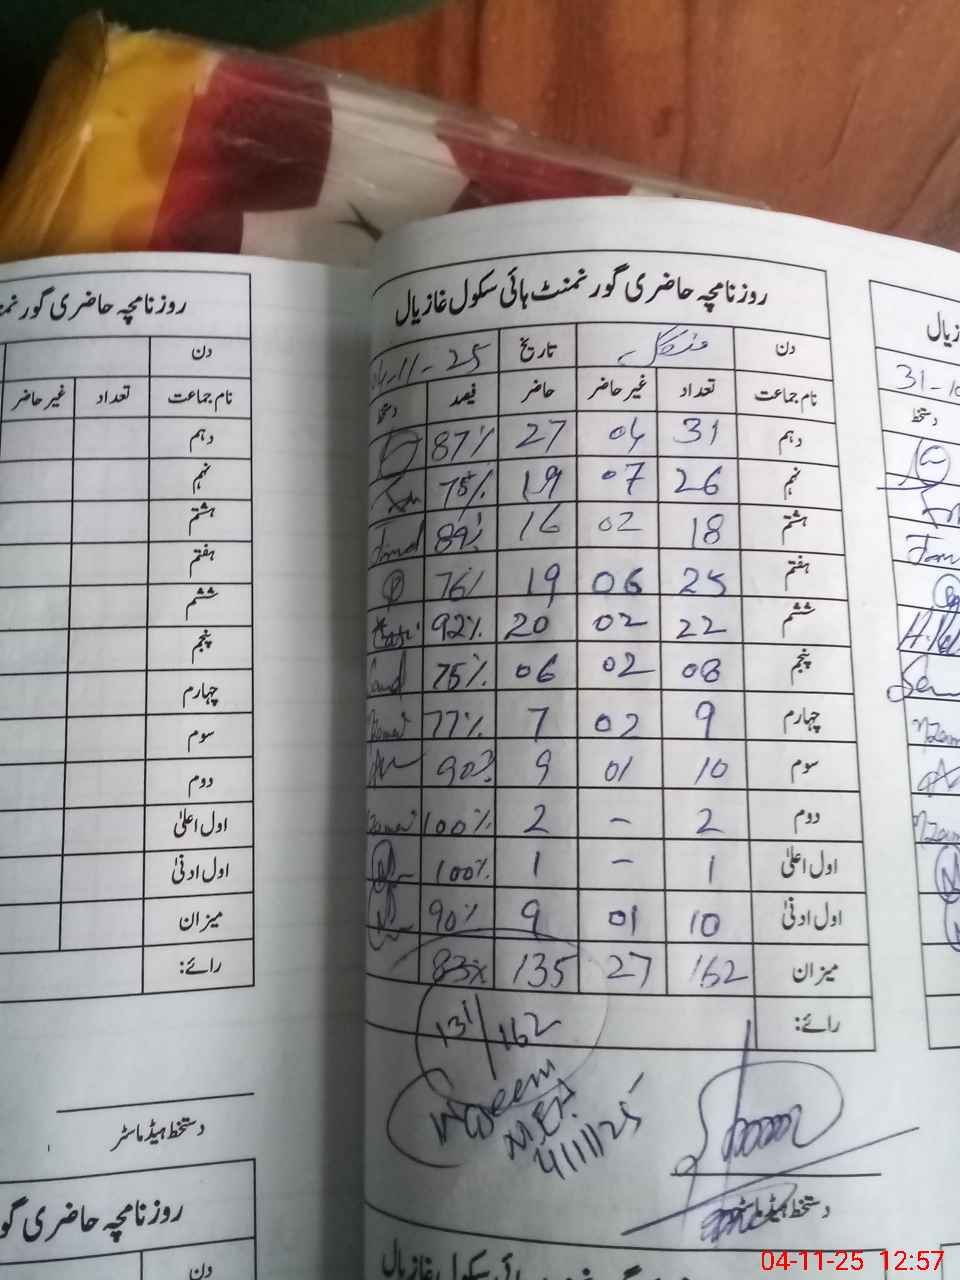 روزنامچہ حاضری گورنمنٹ ہائی سکول غازیال
دن منگل تاریخ 04-11-25
نام جماعت تعداد غیر حاضر حاضر فیصد دستخط
دہم 31 04 27 87%
نہم 26 07 19 75%
ہشتم 18 02 16 89%
ہفتم 25 06 19 76%
ششم 22 02 20 92%
پنجم 08 02 06 75%
چہارم 9 02 7 77%
سوم 10 01 9 90%
دوم 2 - 2 100%
اول اعلیٰ 1 - 1 100%
اول ادنیٰ 10 01 9 90%
میزان 162 27 135 83%
رائے:
131/162
Waseem
MEA
4/11/25
دستخط ہیڈ ماسٹر
ہائی سکول غازیال
روزنامچہ حاضری
دن
نام جماعت تعداد غیر حاضر
دہم
نہم
ہشتم
ہفتم
ششم
پنجم
چہارم
سوم
دوم
اول اعلیٰ
اول ادنیٰ
میزان
رائے:
دستخط ہیڈ ماسٹر
روزنامچہ حاضری
دن
31-10
دستخط
04-11-25 12:57